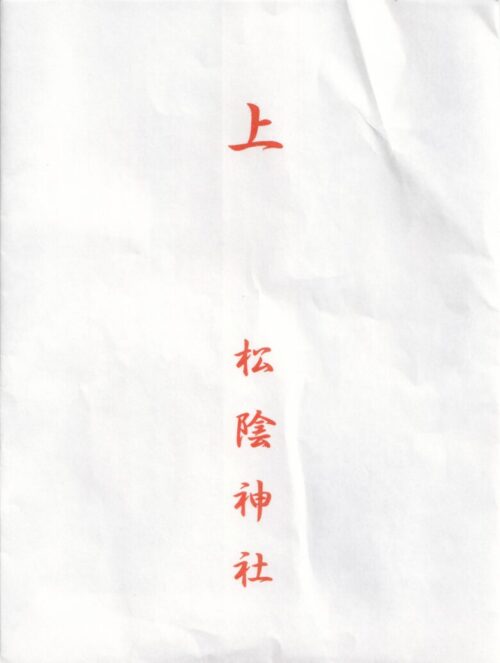 上
松陰神社